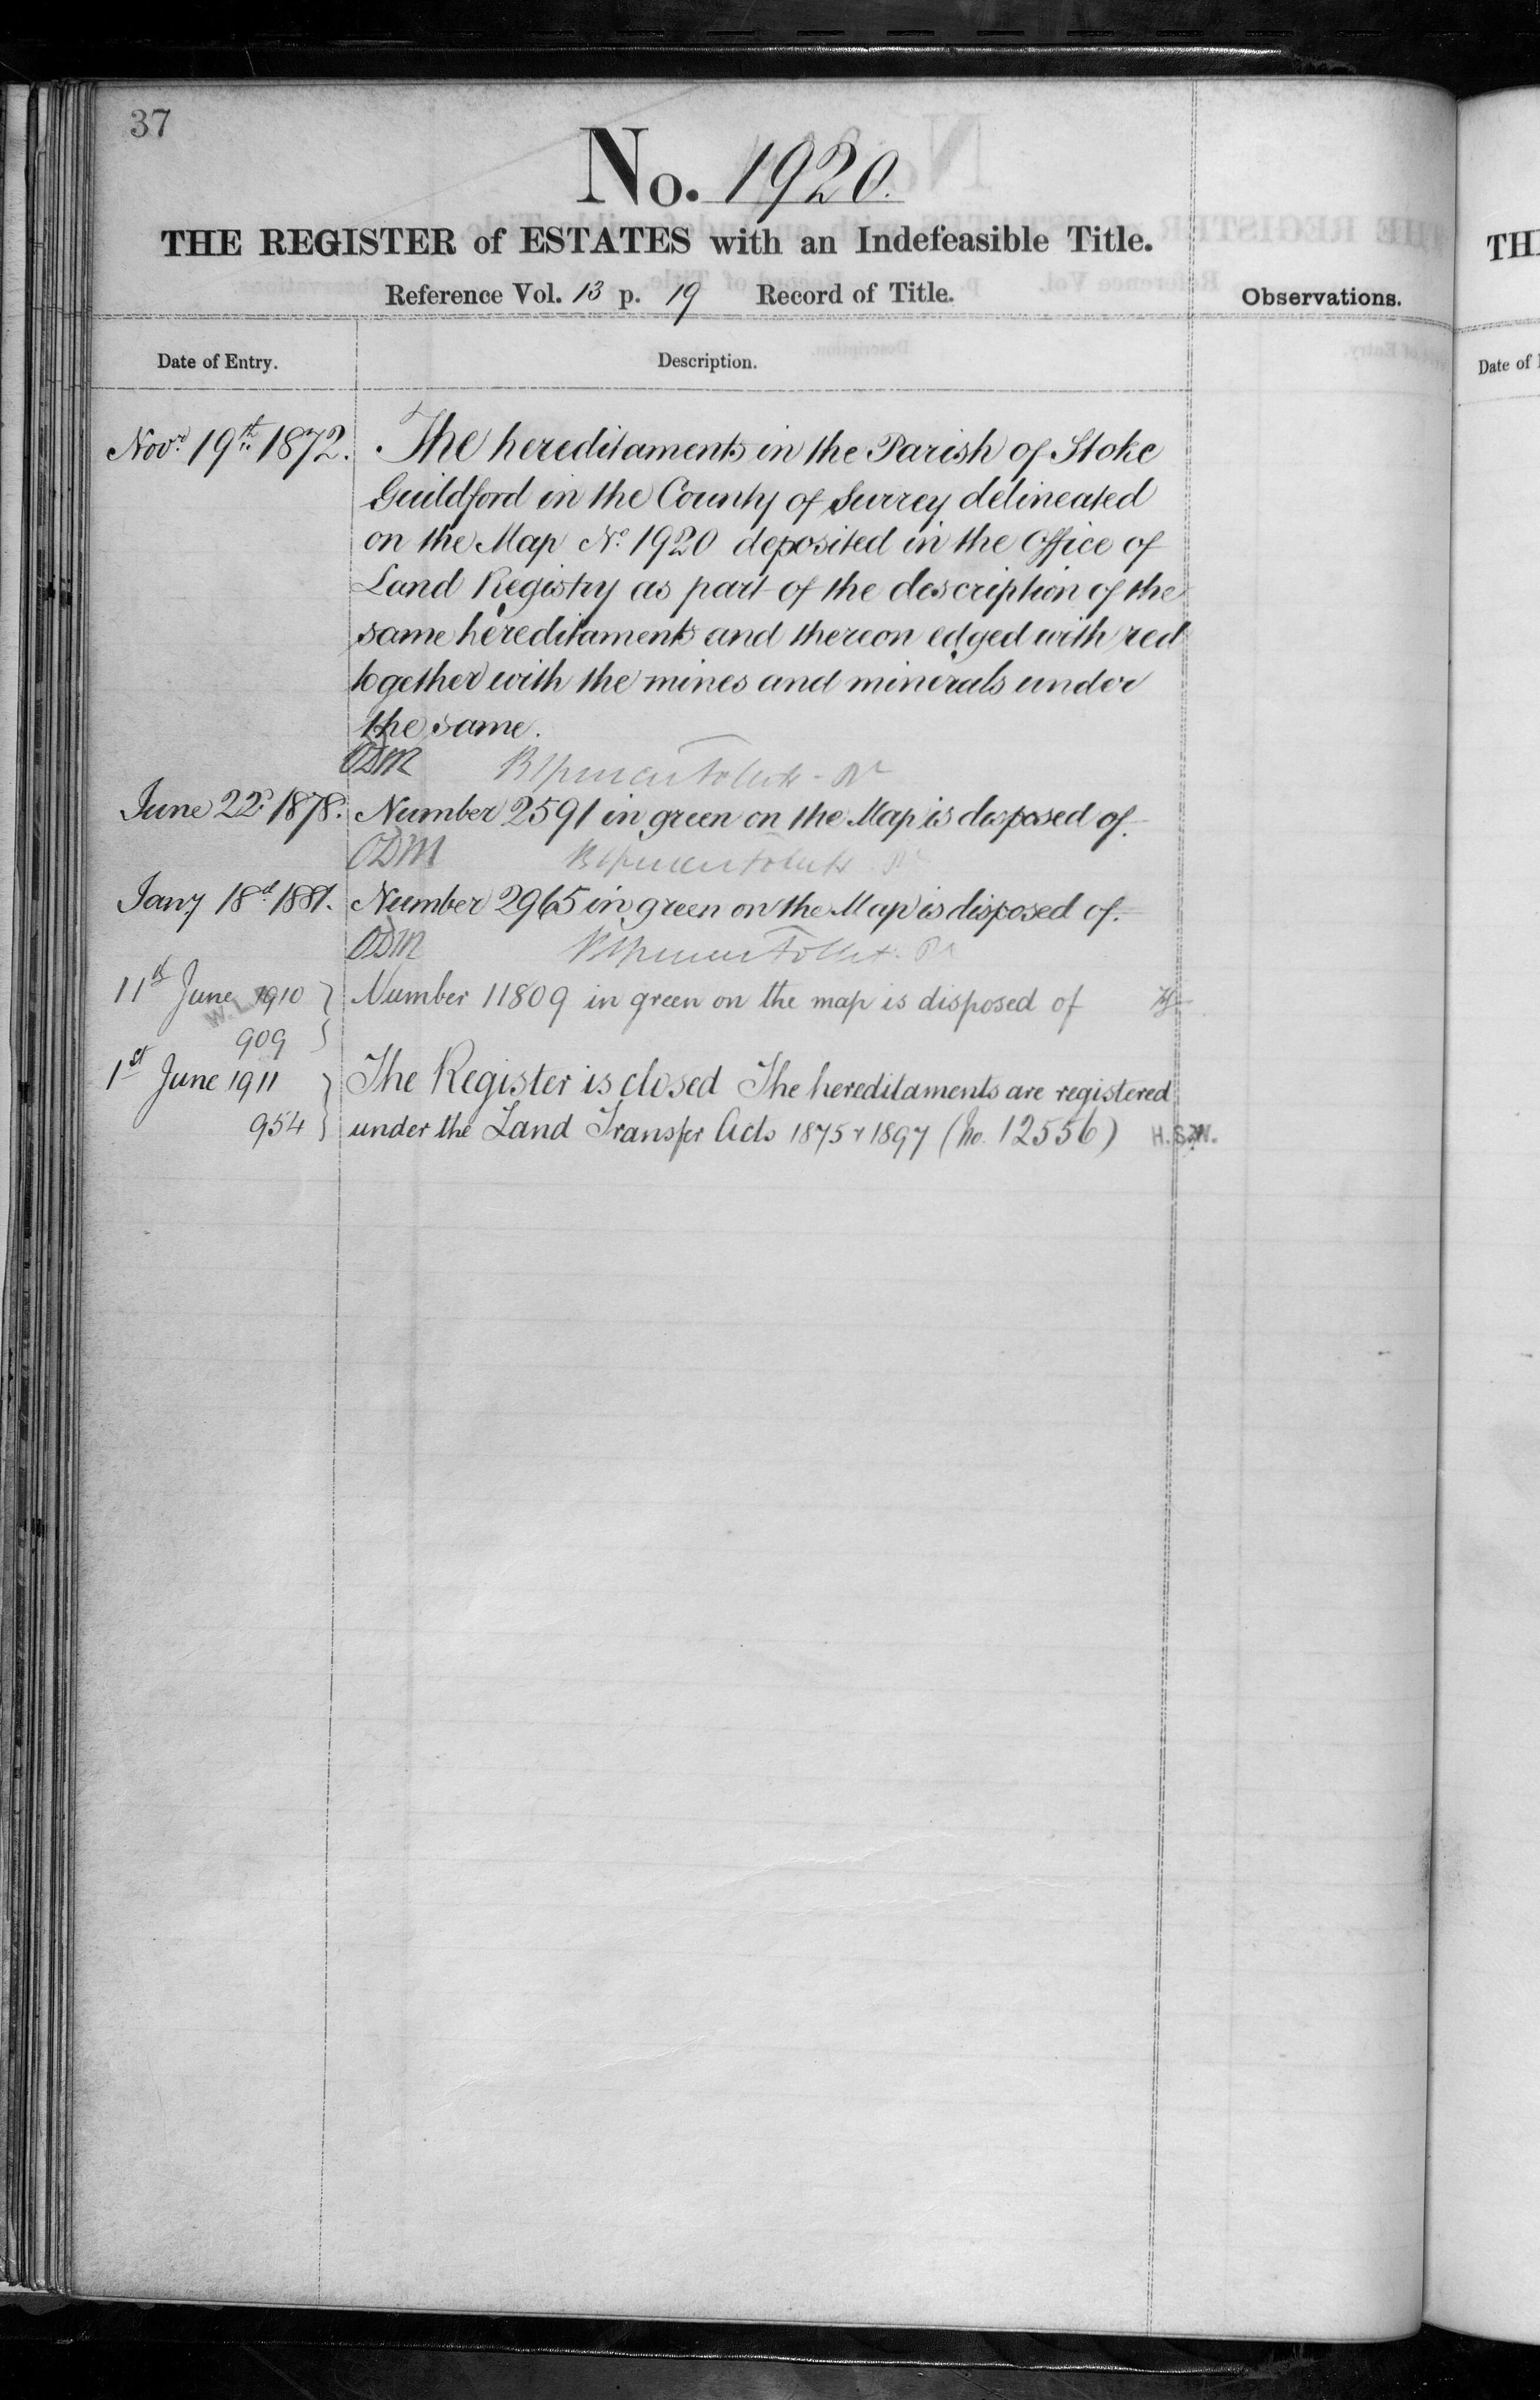 37
No. 1920.
THE REGISTER of ESTATES with an Indefeasible Title.
Reference Vol. 13 p. 19 Record of Title.
Observations.
Date of Entry.
Description.
Novr. 19th 1872. The hereditaments in the Parish of Stoke
Guildford in the County of Surrey delineated
on the Map No. 1920 deposited in the Office of
Land Registry as part of the description of the
same hereditaments and thereon edged with red
together with the mines and minerals under
the same.
ODM
June 22d. 1878. Number 2591 in green on the Map is disposed of.
ODM
Jany 18th 1881. Number 2965 in green on the Map is disposed of.
ODM
11th June 1910 } Number 11809 in green on the map is disposed of
909
1st June 1911 } The Register is closed The hereditaments are registered
954 } under the Land Transfer Acts 1875 & 1897 (No. 12556) H.S.W.
TH
Date of